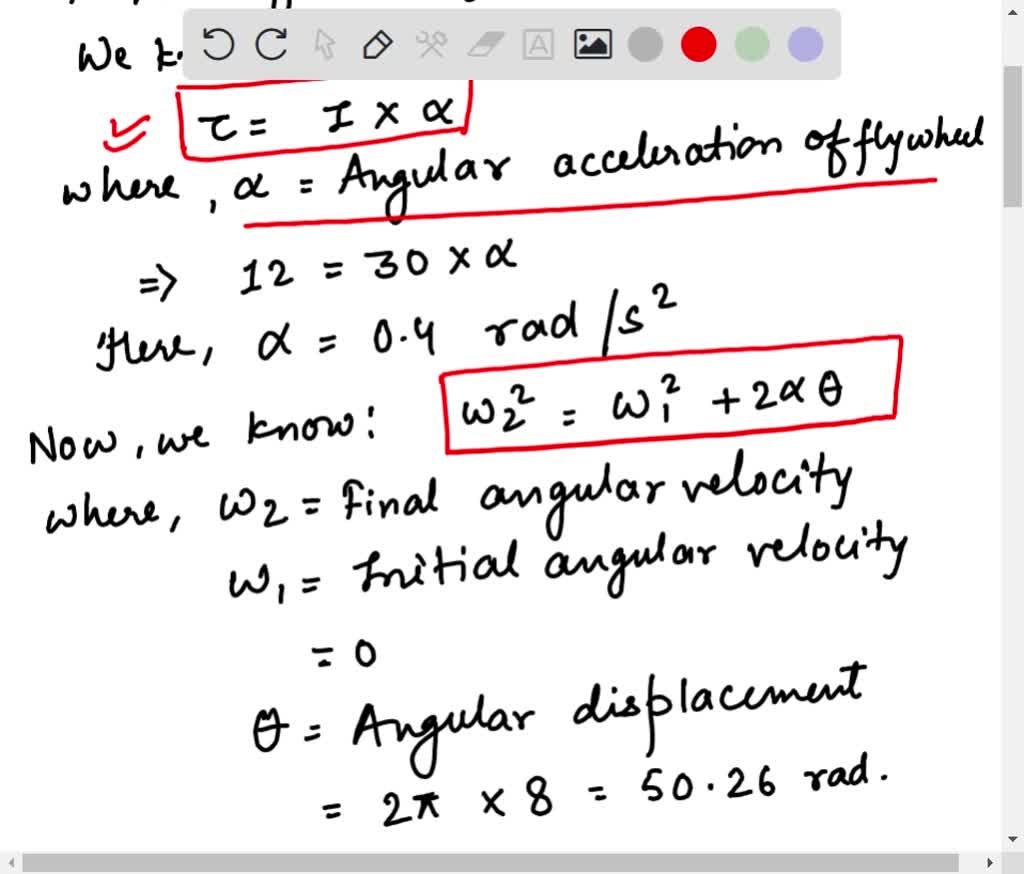 We
τ = I × α
where, α = Angular acceleration of flywheel
=> 12 = 30 × α
Here, α = 0.4 rad/s²
Now, we know: ω₂² = ω₁² + 2αθ
where, ω₂ = Final angular velocity
ω₁ = Initial angular velocity
= 0
θ = Angular displacement
= 2π × 8 = 50.26 rad.